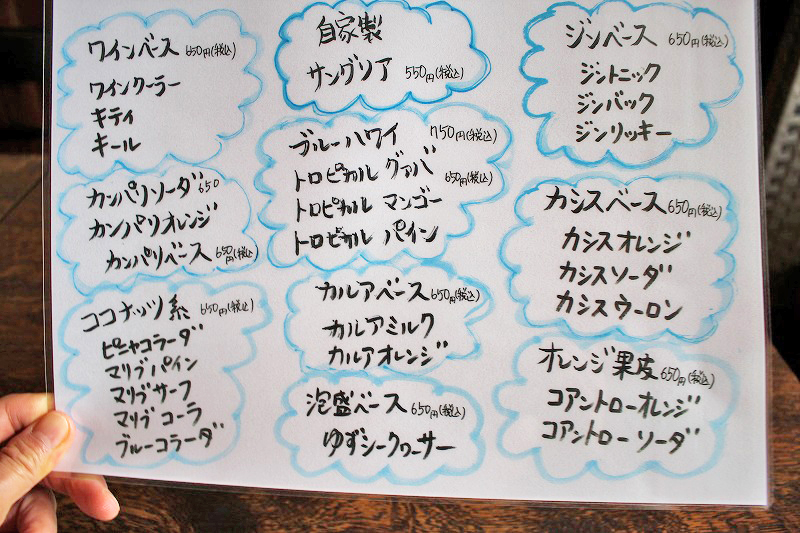 ワインベース 650円(税込)
ワインクーラー
キティ
キール
カンパリソーダ 650
カンパリオレンジ
カンパリベース 650円(税込)
ココナッツ系 650円(税込)
ピニャコラーダ
マリブパイン
マリブサーフ
マリブコーラ
ブルーコラーダ
自家製
サングリア 550円(税込)
ブルーハワイ 750円(税込)
トロピカル グァバ 650円(税込)
トロピカル マンゴー
トロピカル パイン
カルアベース 650円(税込)
カルアミルク
カルアオレンジ
泡盛ベース 650円(税込)
ゆずシークヮーサー
ジンベース 650円(税込)
ジントニック
ジンバック
ジンリッキー
カシスベース 650円(税込)
カシスオレンジ
カシスソーダ
カシスウーロン
オレンジ果皮 650円(税込)
コアントローオレンジ
コアントローソーダ